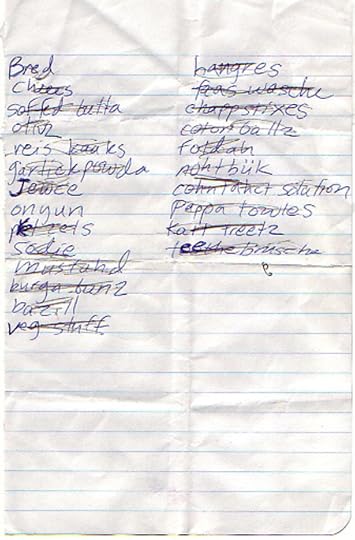 Bred
Cheers
soffed butta
otin
reis kaaks
garlickpowda
Jewce
onyun
petzels
sodie
mustuhd
burga bunz
bazill
veg stuff
hangres
fras wasche
chappstixes
cotonballz
foldah
nohtbük
cohntahct solution
peppa towles
katt treetz
teethebrusche